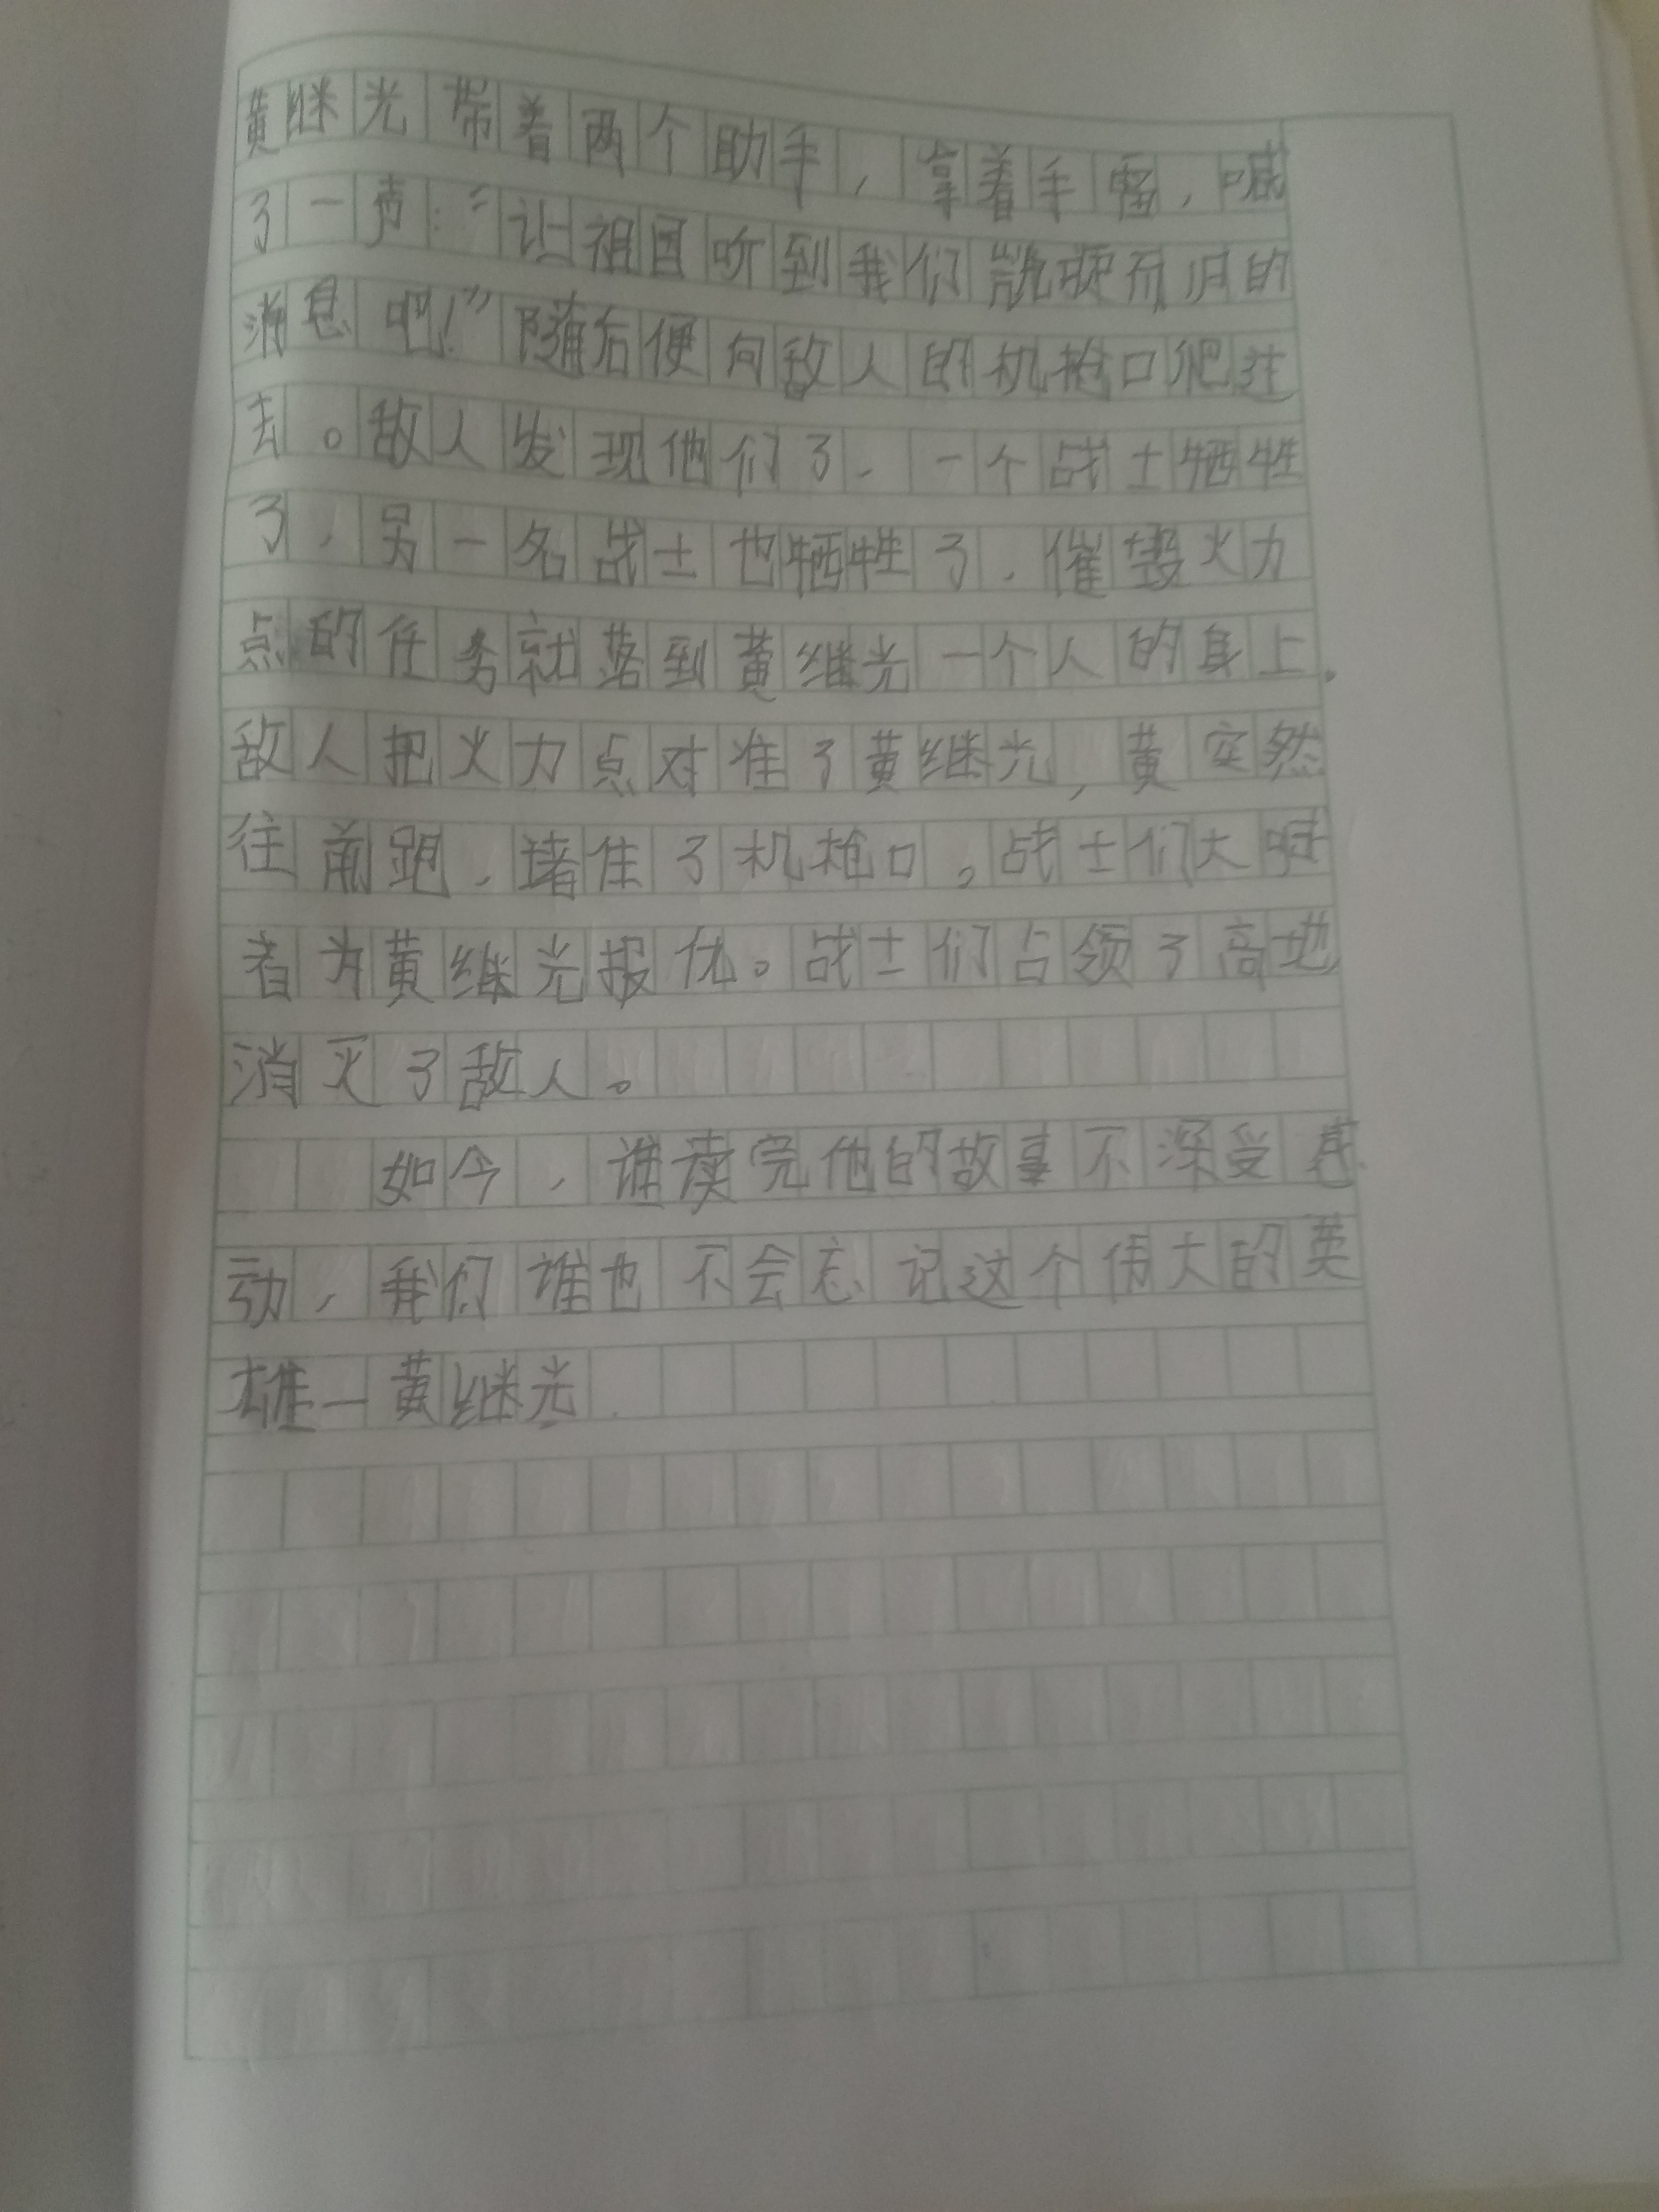 黄继光带着两个助手，拿着手榴，喊
了一声：“让祖国听到我们凯旋而归的
消息吧！”随后便向敌人的机枪口爬过
去。敌人发现他们了，一个战士牺牲
了，另一名战士也牺牲了，催毁火力
点的任务就落到黄继光一个人的身上。
敌人把火力点对准了黄继光，黄突然
往前跑，堵住了机枪口。战士们大喊
着为黄继光报仇。战士们占领了高地，
消灭了敌人。
如今，谁读完他的故事不深受感
动，我们谁也不会忘记这个伟大的英
雄—黄继光